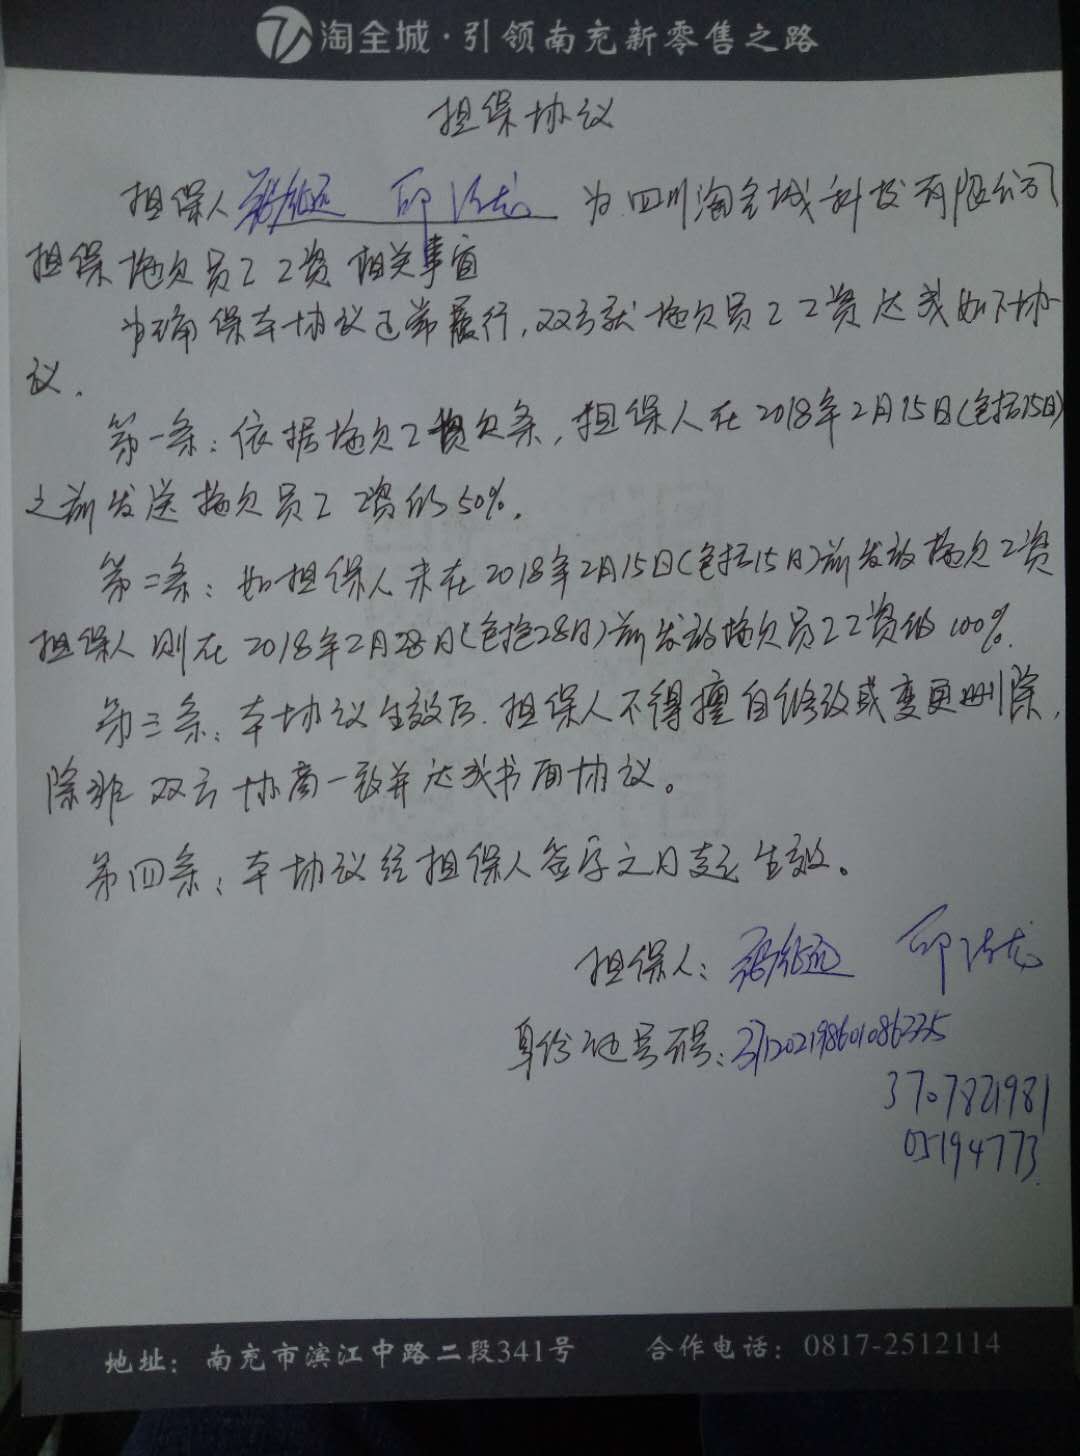 淘全城·引领南充新零售之路
担保协议
担保人 为四川淘全城科技有限公司
担保拖欠员工工资相关事宜
为确保本协议正常履行,双方就拖欠员工工资达成如下协
议.
第一条:依据拖欠工资欠条,担保人在2018年2月15日(包括15日)
之前发送拖欠员工工资的50%.
第二条:如担保人未在2018年2月15日(包括15日)前发放拖欠工资
担保人则在2018年2月28日(包括28日)前发放拖欠员工工资的100%.
第三条:本协议生效后.担保人不得擅自修改或变更删除,
除非双方协商一致并达成书面协议。
第四条:本协议经担保人签字之日起生效。
担保人:
身份证号码:
3707821981
05194773.
地址:南充市滨江中路二段341号 合作电话:0817-2512114